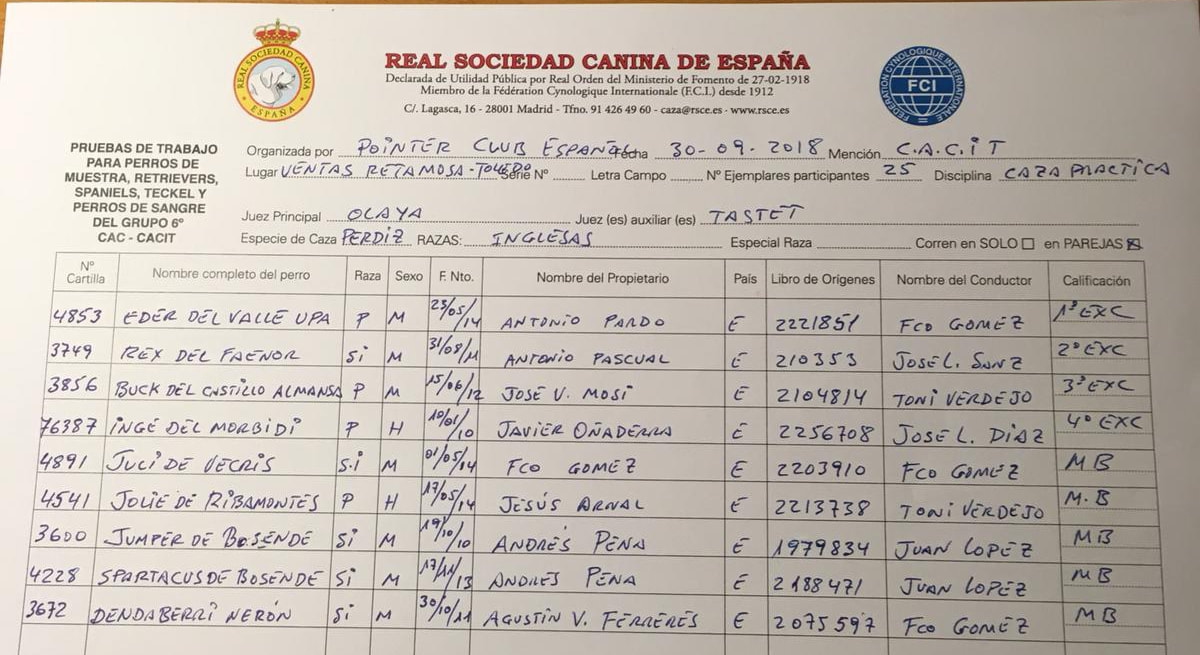 REAL SOCIEDAD CANINA ESPAÑA
REAL SOCIEDAD CANINA DE ESPAÑA
Declarada de Utilidad Pública por Real Orden del Ministerio de Fomento de 27-02-1918
Miembro de la Fédération Cynologique Internationale (F.C.I.) desde 1912
C/. Lagasca, 16 - 28001 Madrid - Tfno. 91 426 49 60 - caza@rsce.es - www.rsce.es
FEDERATION CYNOLOGIQUE INTERNATIONALE
FCI
PRUEBAS DE TRABAJO
PARA PERROS DE
MUESTRA, RETRIEVERS,
SPANIELS, TECKEL Y
PERROS DE SANGRE
DEL GRUPO 6º
CAC - CACIT
Organizada por POINTER CLUB ESPAÑOL Fecha 30-09-2018 Mención C.A.C.I T
Lugar VENTAS RETAMOSA-TOLEDO Serie Nº Letra Campo Nº Ejemplares participantes 25 Disciplina CAZA PRACTICA
Juez Principal OLAYA Juez (es) auxiliar (es) TASTET
Especie de Caza PERDIZ RAZAS: INGLESAS Especial Raza Corren en SOLO en PAREJAS
Nº Cartilla Nombre completo del perro Raza Sexo F. Nto. Nombre del Propietario País Libro de Orígenes Nombre del Conductor Calificación
4853 EDER DEL VALLE UPA P M 23/05/14 ANTONIO PARDO E 2221851 FCO GOMEZ 1º EXC
3749 REX DEL FAENOR Si M 31/08/11 ANTONIO PASCUAL E 210353 JOSE L. SANZ 2º EXC
3856 BUCK DEL CASTILLO ALMANSA P M 15/06/12 JOSE V. MOSI E 2104814 TONI VERDEJO 3º EXC
76387 INGE DEL MORBIDI P H 10/01/10 JAVIER OÑADERRA E 2256708 JOSE L. DIAZ 4º EXC
4891 JUCI DE VECRIS S.i M 01/05/14 FCO GOMEZ E 2203910 FCO GOMEZ MB
4541 JOLIE DE RIBAMONTES P H 17/05/14 JESÚS ARNAL E 2213738 TONI VERDEJO M.B
3600 JUMPER DE BOSENDE Si M 19/10/10 ANDRÉS PENA E 1979834 JUAN LOPEZ MB
4228 SPARTACUS DE BOSENDE Si M 17/11/13 ANDRES PENA E 2188471 JUAN LOPEZ MB
3672 DENDABERRI NERÓN Si M 30/10/11 AGUSTIN V. FERRERES E 2075597 FCO GOMEZ MB